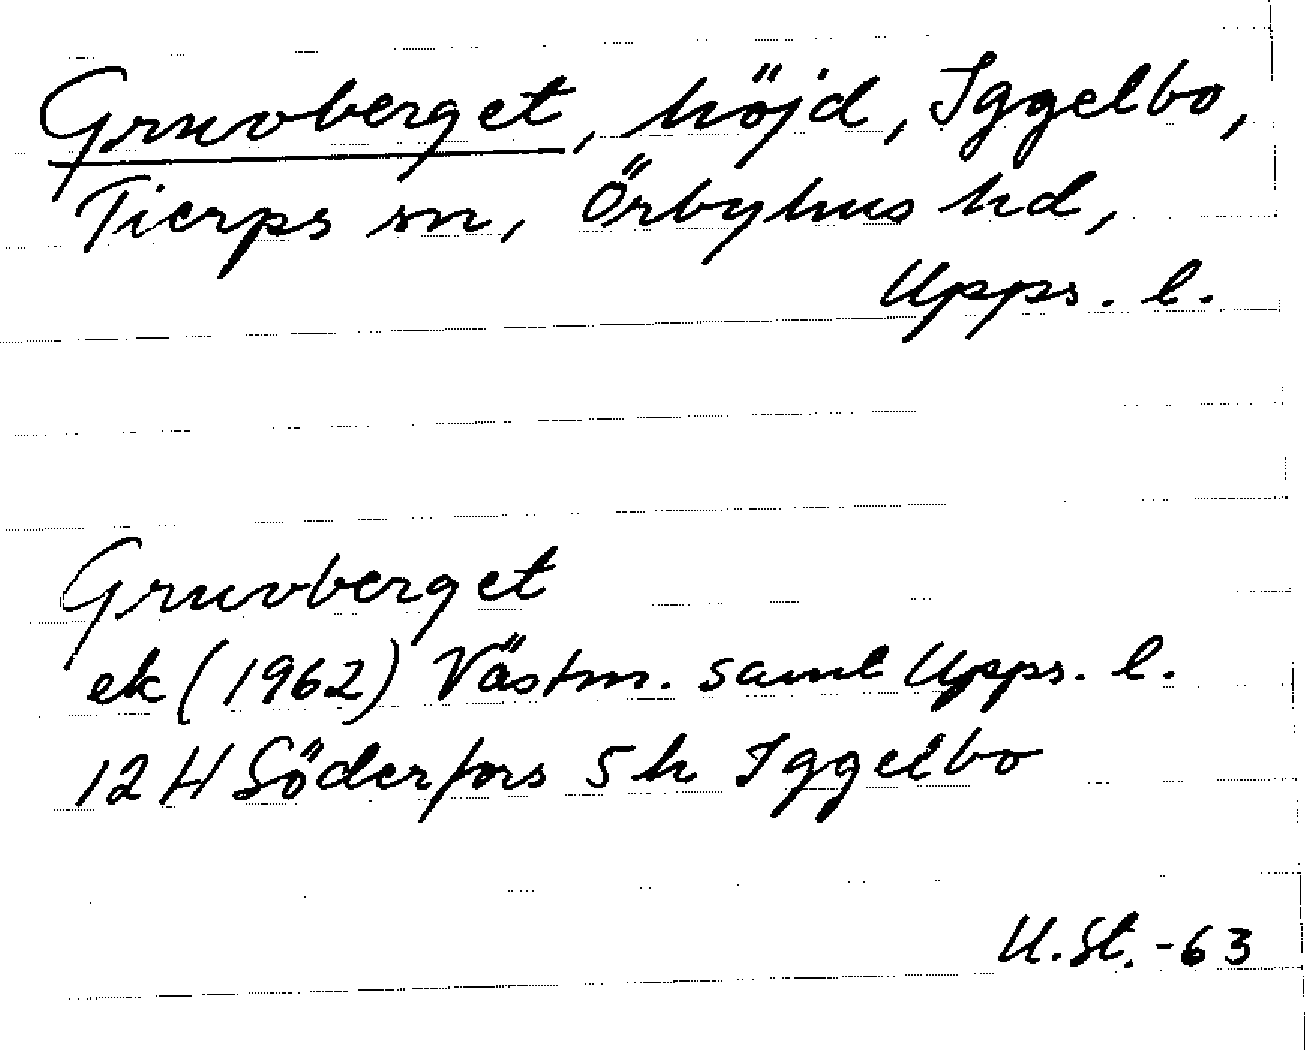 Gruvberget, höjd, Iggelbo,
Tierps sn, Örbyhus hd,
Upps. l.
Gruvberget
ek (1962) Västm. samt Upps. l.
12 H Söderfors 5 h Iggelbo
U.St. -63